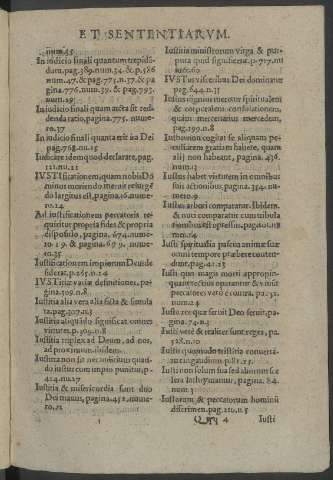 ET SENTENTIARVM.
num.45
In iudicio finali quantum trepidandum, pag.389.num.34. & p.586
num.47. & pag.771.num.37. & pagina.776.num.39. & pag.793.
num.29
In iudicio finali quam arcta sit reddenda ratio, pagina.775. numero.37
In iudicio finali quanta erit ira Dei
pag.768.nu.25
Iudicare idem quod declarare, pag.
121.nu.21
IVSTificationem, quam nobis Dominus moriendo meruit
do largitus est, pagina.16. numero.24
Ad iustificationem peccatoris requiritur propria fides & propria
dispositio, pagina.674. numero 19. & pagina.679. numero.35
Iustificationem impiorum Deus desiderat, p.265.n.24
IVSTitiæ variæ definitiones, pagina.309.n.8
Iustitia alia vera alia ficta & simulata, pag.307.n.3
Iustitia aliquādo significat omnes
virtutes, p.309.n.8
Iustitia triplex ad Deum, ad nos,
ad proximum. ibidem.
Iustitia non
iustus cum impio punitur, p.
414.nu.27
Iustitia & misericordia sunt duo
Dei manus, pagina.452. numero.21
Iustitia ministrorum virga & purpura quid significent. p.717.numero.60
IVSTus visceribus Dei dominatur
pag.644.n.35
Iustus dignum mercetur spiritualem
& corporalem consolationem,
quam mercenarius mercedem,
pag.199.n.8
Iustus non cogitat se aliquam peculiarem gratiam habere, quam
alij non habeant, pagina.436.
num.13
Iustus habet virtutem in omnibus
suis actionibus, pagina.354. numero.9
Iustus arbori comparatur. Ibidem.
& nuci comparatur cum tribulationibus est oppressus, pag.10.numero.28
Iusti spiritualia pascua animæ suæ
omni tempore præbere contendunt, pag.42.23
Iusti quo magis morti appropinquant
peccatores verò è contra, pa.32.
numa.24
Iuste nec quæ serviat Deo servit, pagina.74.n.3
Iusti verè & realiter sunt reges, pa.
528.n.10
Iusti quomodo iustitia convertatur
p.82.15.
Iusti non solum sua sed aliorum scelera lachrymantur, pagina. 84.
num.5
Iustorum & peccatorum hominū
discrimen, pag.210.n.5
Qqq 4
Iusti